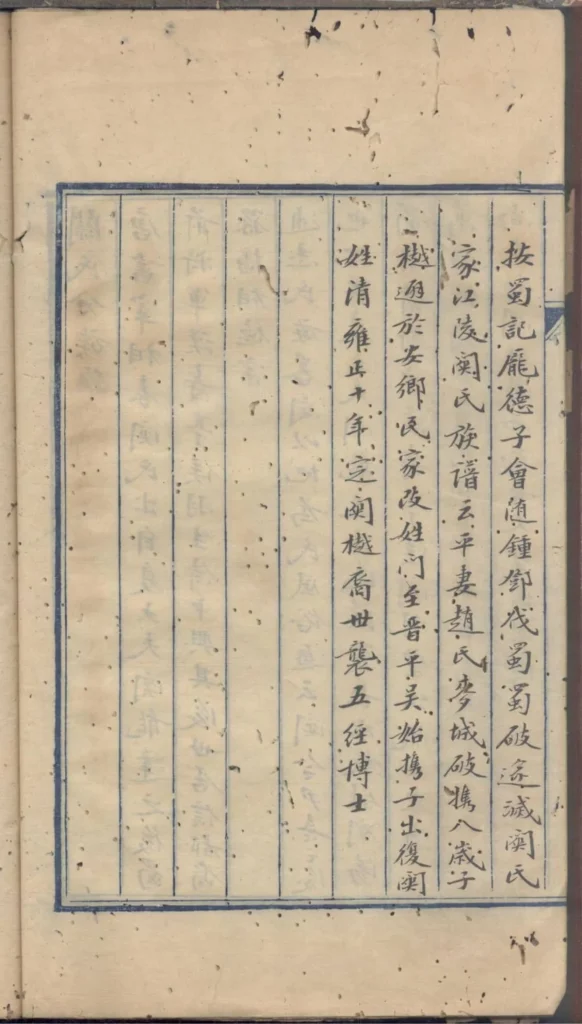 按蜀記龐德子會随鍾鄧伐蜀蜀破盡滅関氏
家江陵関氏族譜云平妻趙氏麥城破携八歲子
樾避於安鄉民家改姓門至晋平吴始携子出復関
姓清雍正十年定関樾裔世襲五經博士